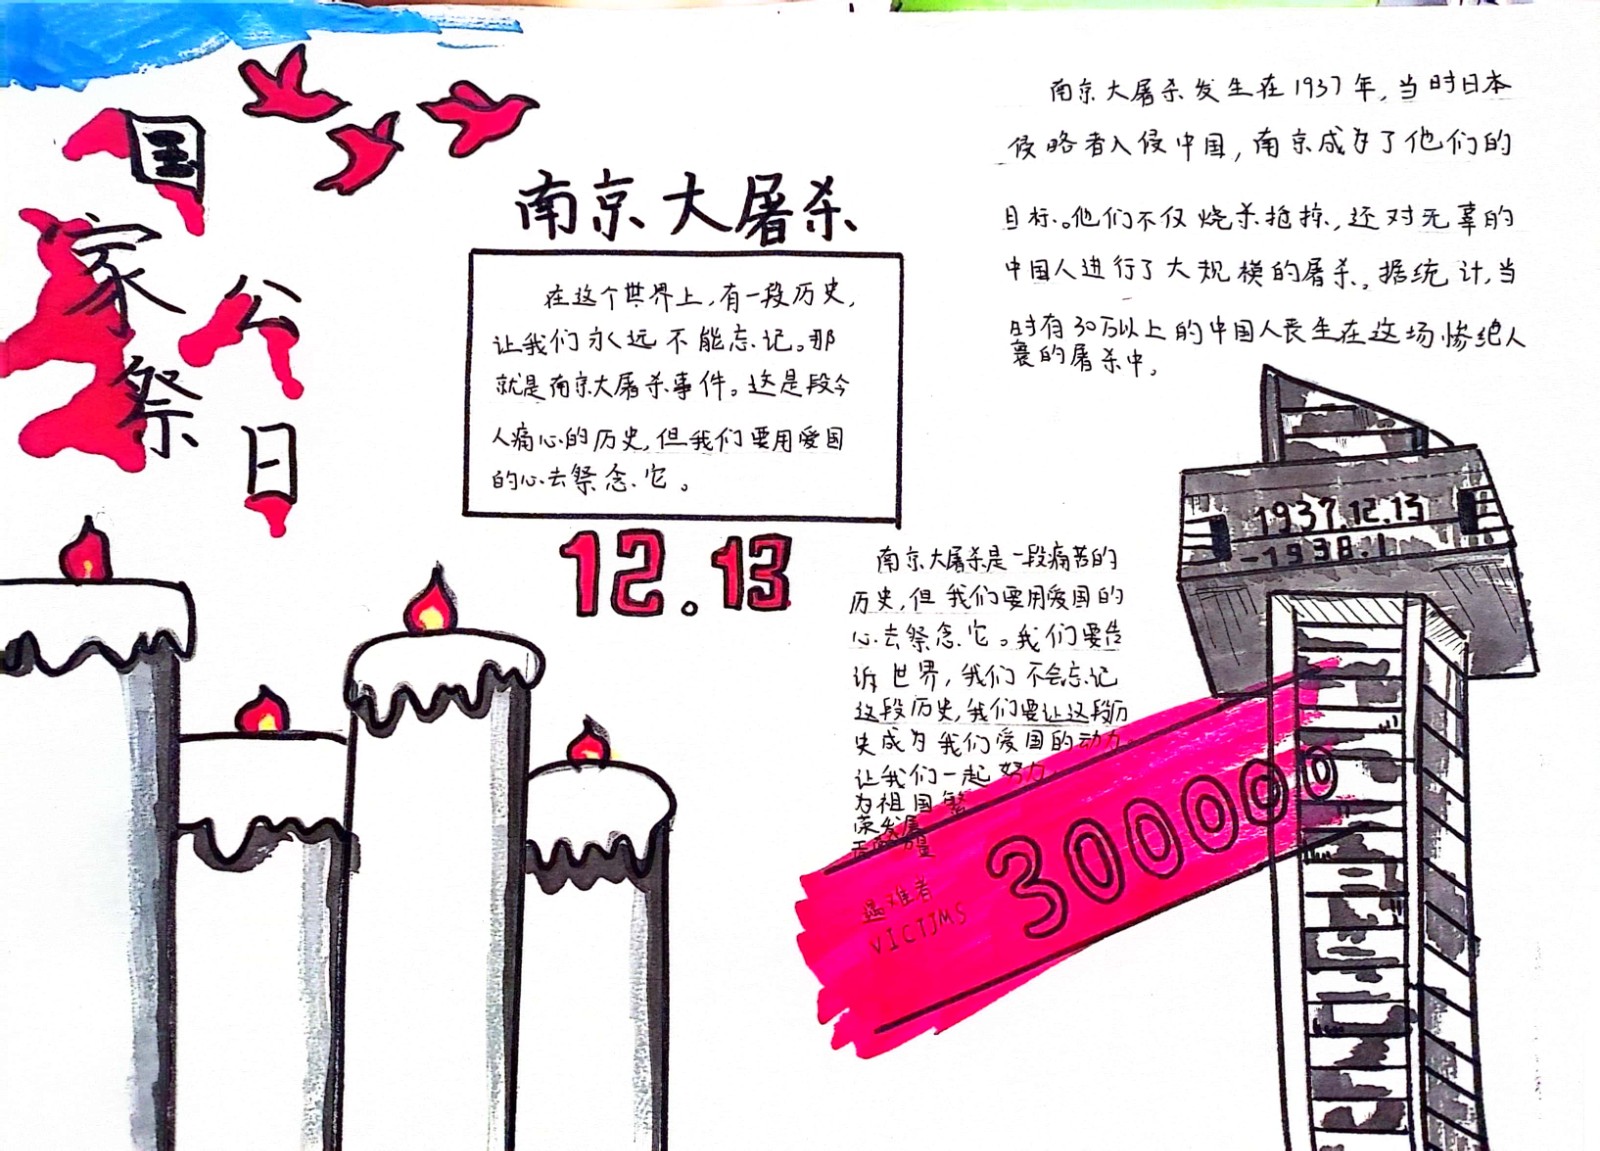 国
家
公
祭
日
南京大屠杀
在这个世界上,有一段历史,
让我们永远不能忘记。那
就是南京大屠杀事件。这是段令
人痛心的历史,但我们要用爱国
的心去祭念它。
12.13
南京大屠杀发生在1937年,当时日本
侵略者入侵中国,南京成为了他们的
目标。他们不仅烧杀抢掠,还对无辜的
中国人进行了大规模的屠杀。据统计,当
时有30万以上的中国人丧生在这场惨绝人
寰的屠杀中。
南京大屠杀是一段痛苦的
历史,但我们要用爱国的
心去祭念它。我们要告
诉世界,我们不会忘记
这段历史,我们要让这段历
史成为我们爱国的动力。
让我们一起努力
为祖国繁
荣发展
力量
1937.12.13
-1938.1
300000
遇难者
VICTJMS